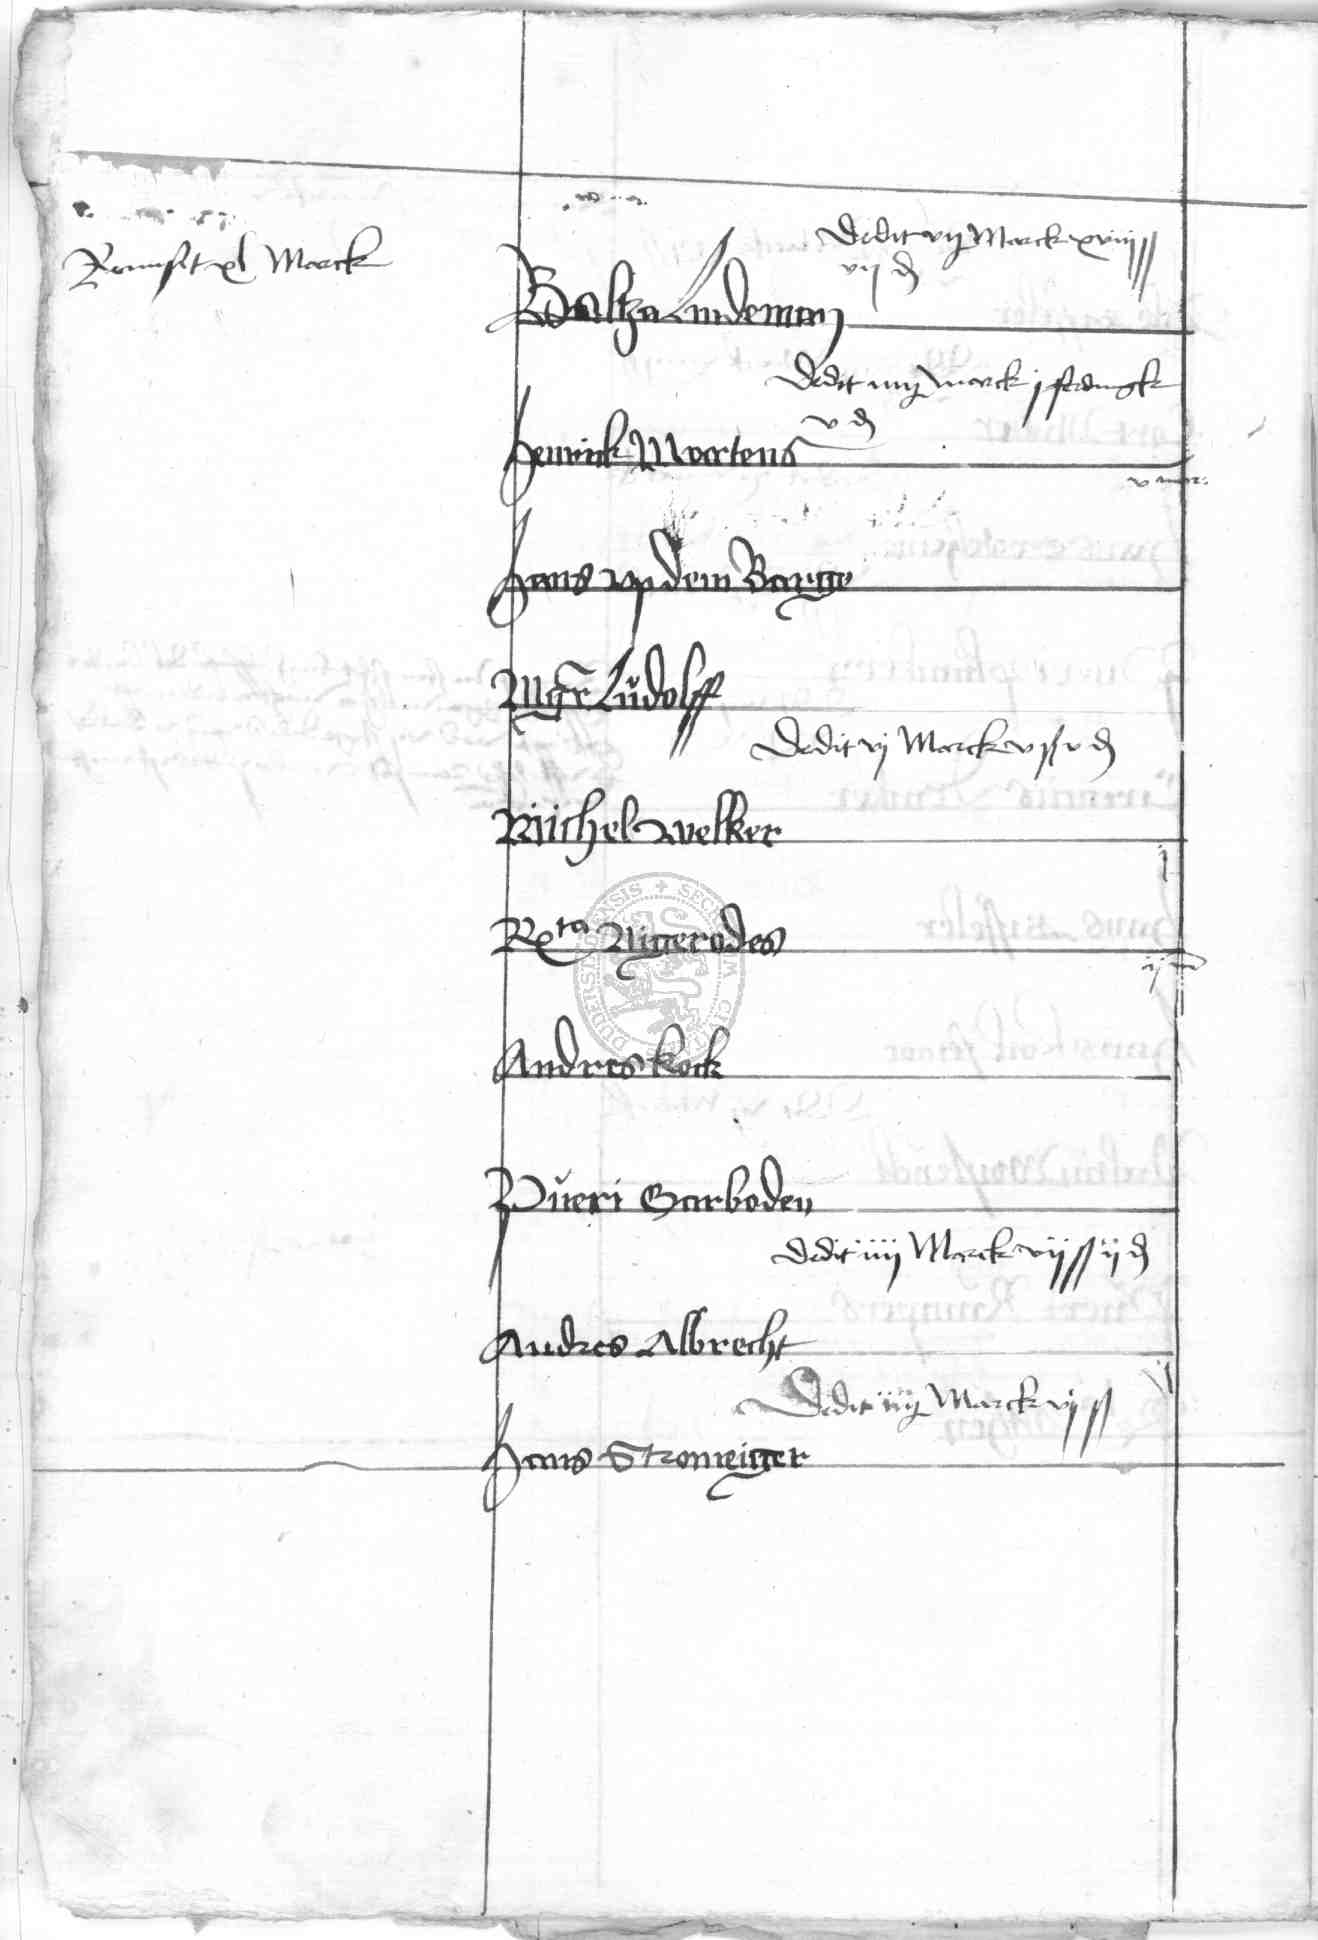 Remisit xl Marck
Dedit vij Marck xviiij ß
vij d
Baltzer Lindeman
Dedit iiij marck j ferdingk
v d
Henrick Mertens
Hans up dem Barge
Mgr Ludolff
Dedit vj Marck v ß v d
Michel Welker
Rcta Nigerodes
Andres Kock
Pueri Garboden
dedit iiij Marck vij ß ij d
Andres Albrecht
Dedit iiij Marck vj ß
Hans Stromeiger